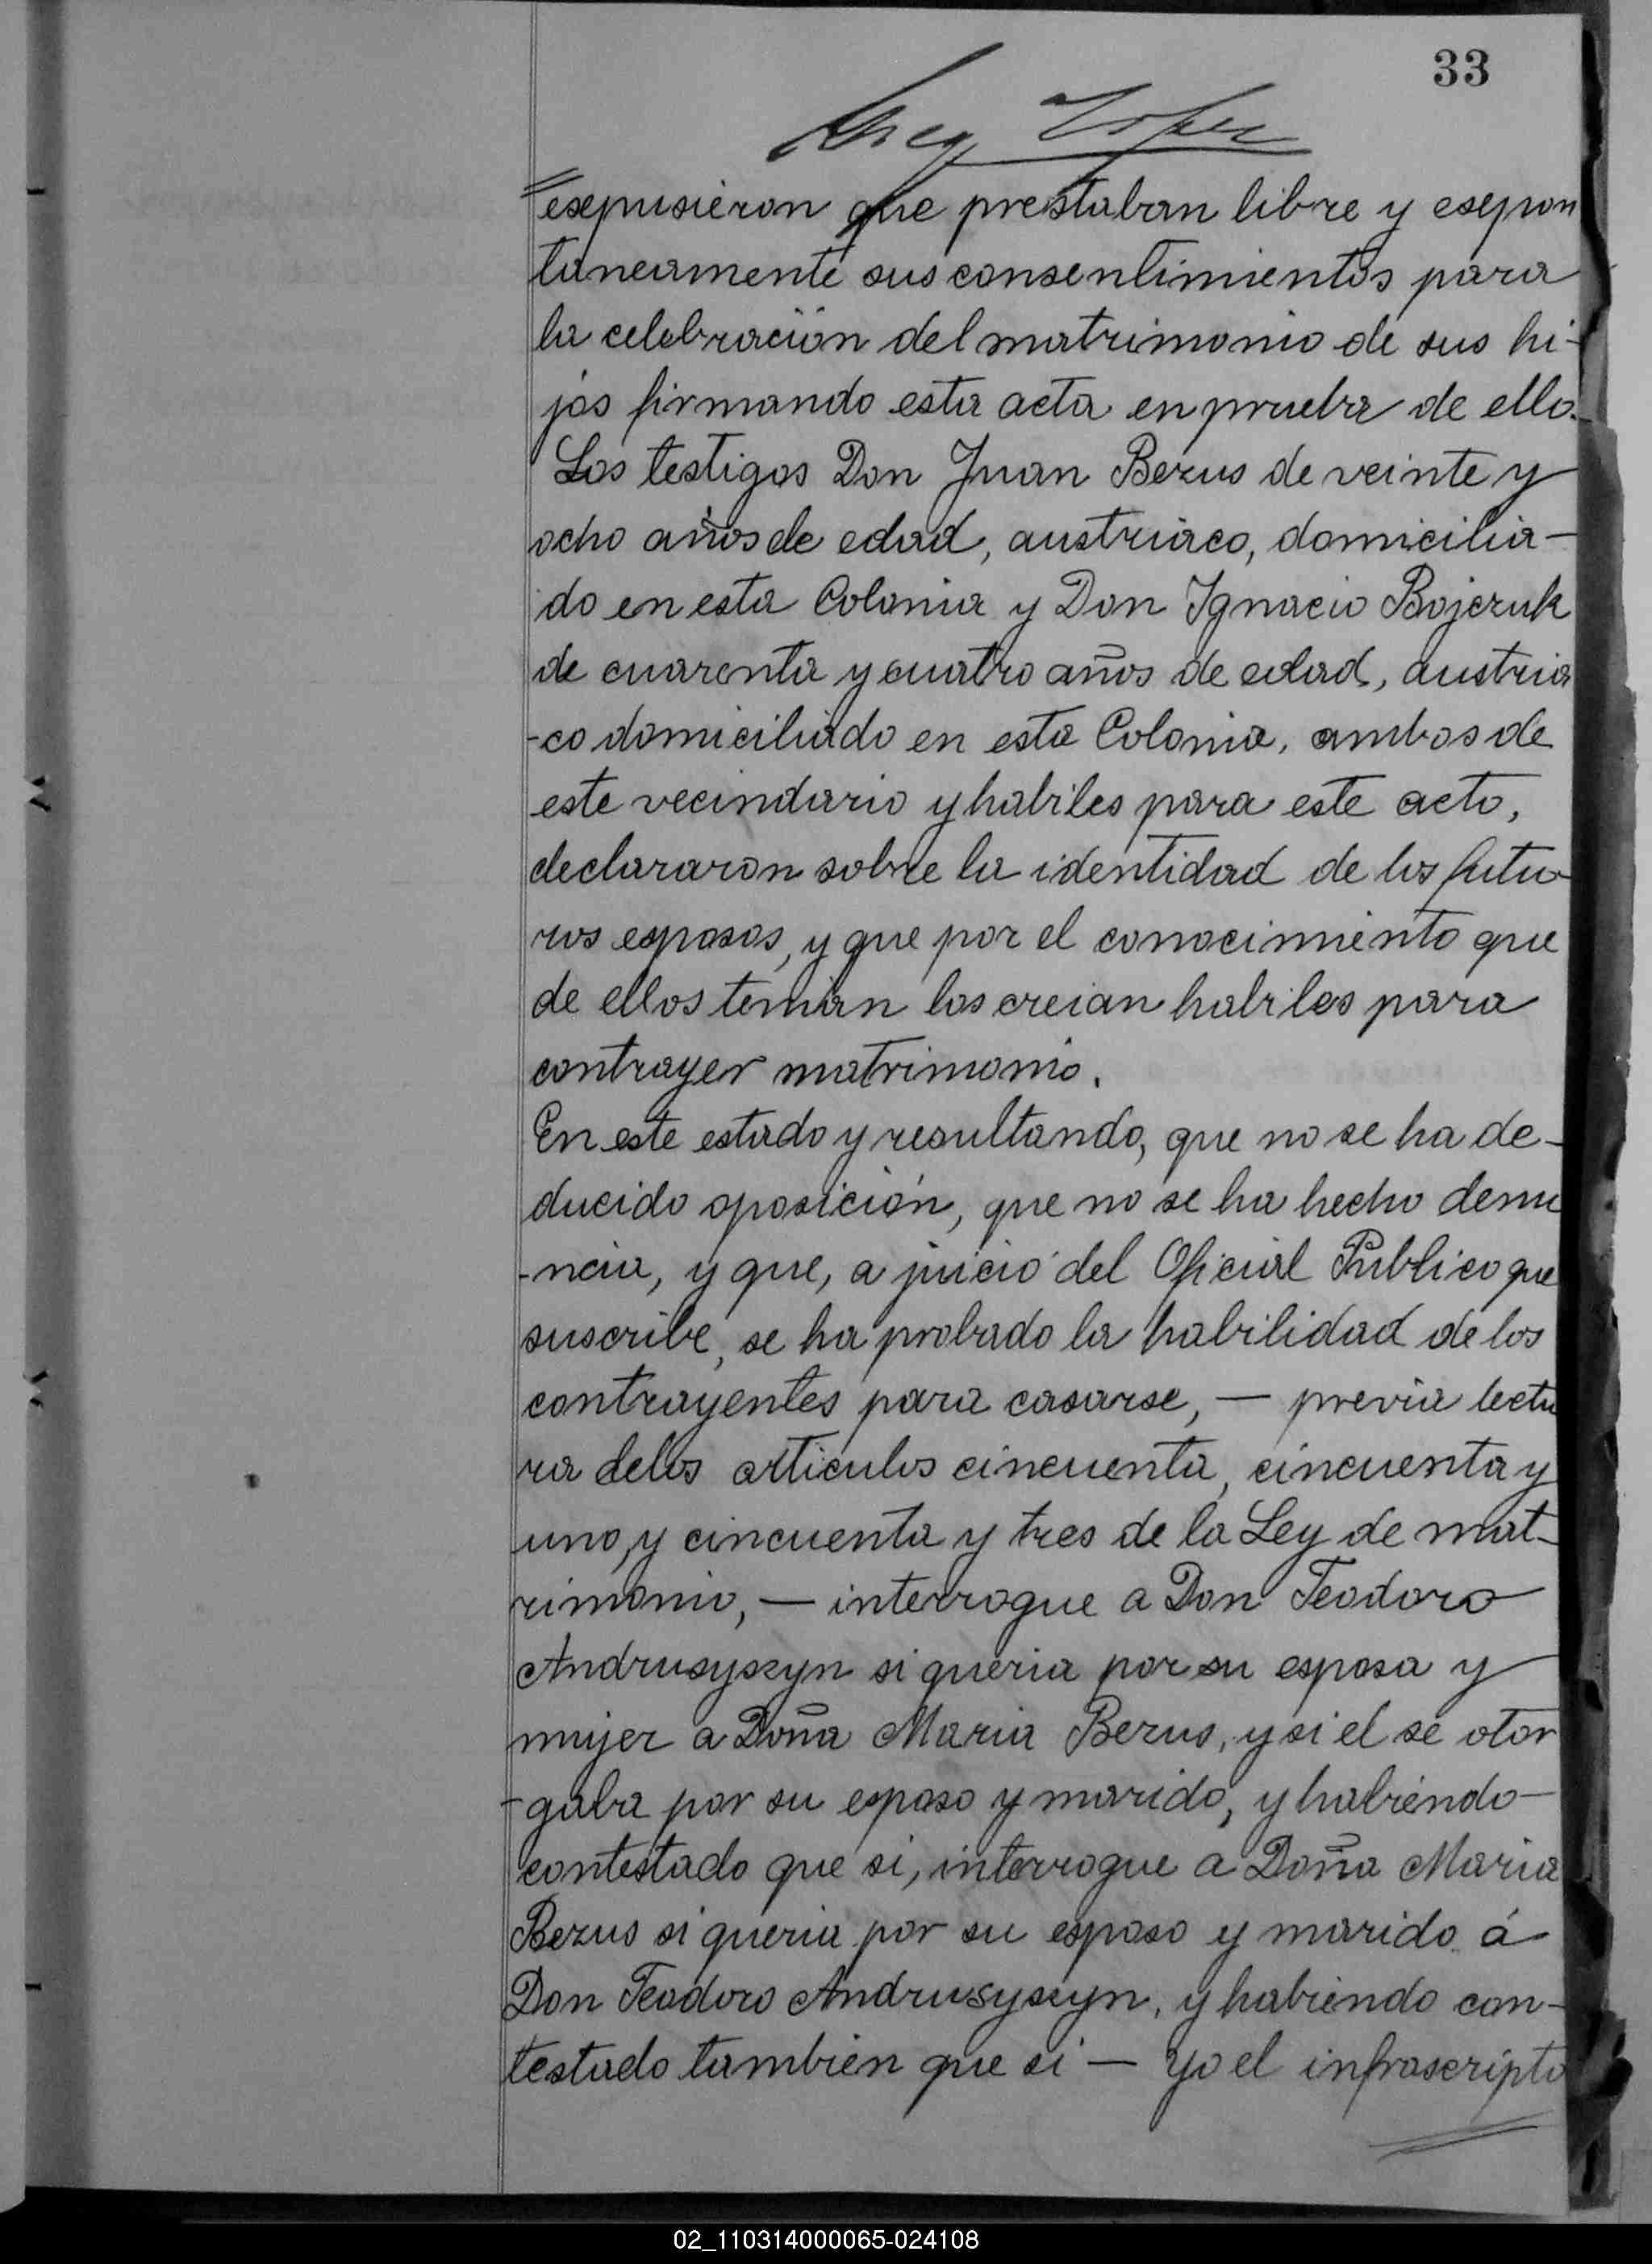 33
esepusieron que prestaban libre y esepon
taneamente sus consentimientos para
la celebración del matrimonio de sus hi-
jos firmando esta acta en prueba de ello.
Los testigos Don Juan Bezus de veinte y
ocho años de edad, austriaco, domicilia-
do en esta Colonia y Don Ignacio Bojczuk
de cuarenta y cuatro años de edad, austria
-co domiciliado en esta Colonia, ambos de
este vecindario y habiles para este acto,
declararon sobre la identidad de los futu-
ros esposos, y que por el conocimiento que
de ellos tenian los creian habiles para
contrayer matrimonio.
En este estado y resultando, que no se ha de-
ducido oposición, que no se ha hecho denu
-ncia, y que, a juicio del Oficial Publico que
suscribe, se ha probado la habilidad de los
contrayentes para casarse, — previa lectu
ra delos articulos cincuenta, cincuenta y
uno, y cincuenta y tres de la Ley de mat-
rimonio, — interrogue a Don Teodoro
Andrusyszyn si queria por su esposa y
mujer a Doña Maria Bezus, y si el se otor
-gaba por su esposo y marido, y habiendo
contestado que si, interrogue a Doña Maria
Bezus si queria por su esposo y marido á
Don Teodoro Andrusyszyn, y habiendo con-
testado tambien que si — yo el infrascripto
02_110314000065-024108